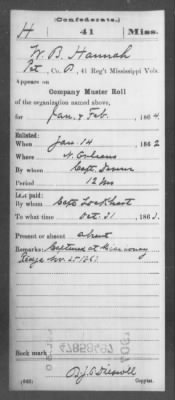 (Confederate.)
H 41 Miss.
W. B. Hannah
Pvt, Co. B, 41 Reg't Mississippi Vols.
Appears on
Company Muster Roll
of the organization named above,
for Jan. & Feb., 1864.
Enlisted:
When Jan 14, 1862
Where N. Orleans
By whom Capt.
Period 12 Mo
Last paid:
By whom Capt Lockhart
To what time Oct. 31, 1863.
Present or absent Absent
Remarks: Captured at Missionary
Ridge Nov. 25" 1863.
Book mark:
(642)
Copyist.